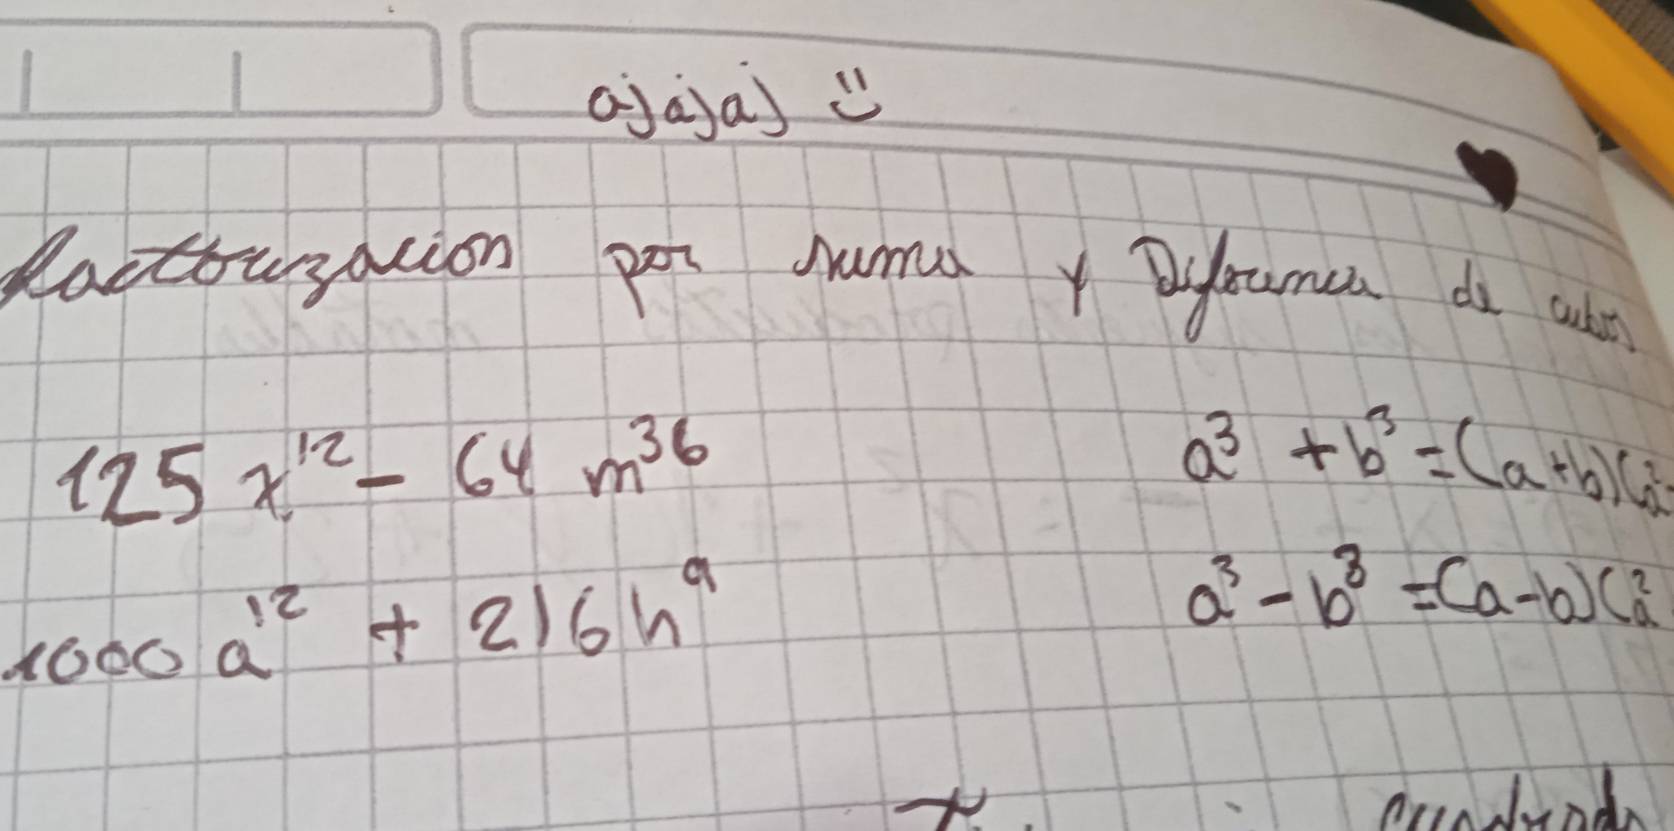 ajajaj
Factorización por suma y Diferencia de cubos
125 x¹² - 64 m³⁶
a³ + b³ = (a+b)(a²-
1000 a¹² + 216 h⁹
a³ - b³ = (a-b)(a²